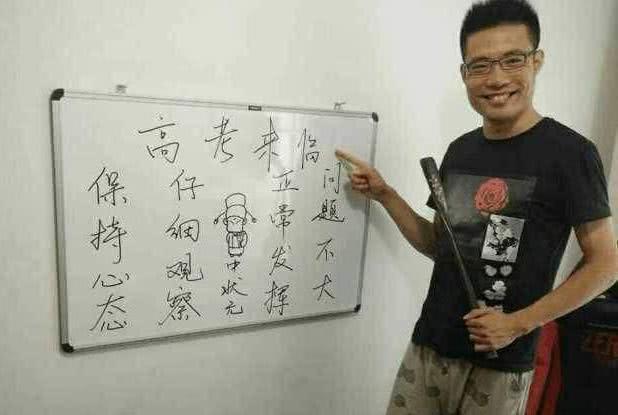 高考来临
保持心态
仔细观察
中状元
正常发挥
问题不大
ZER